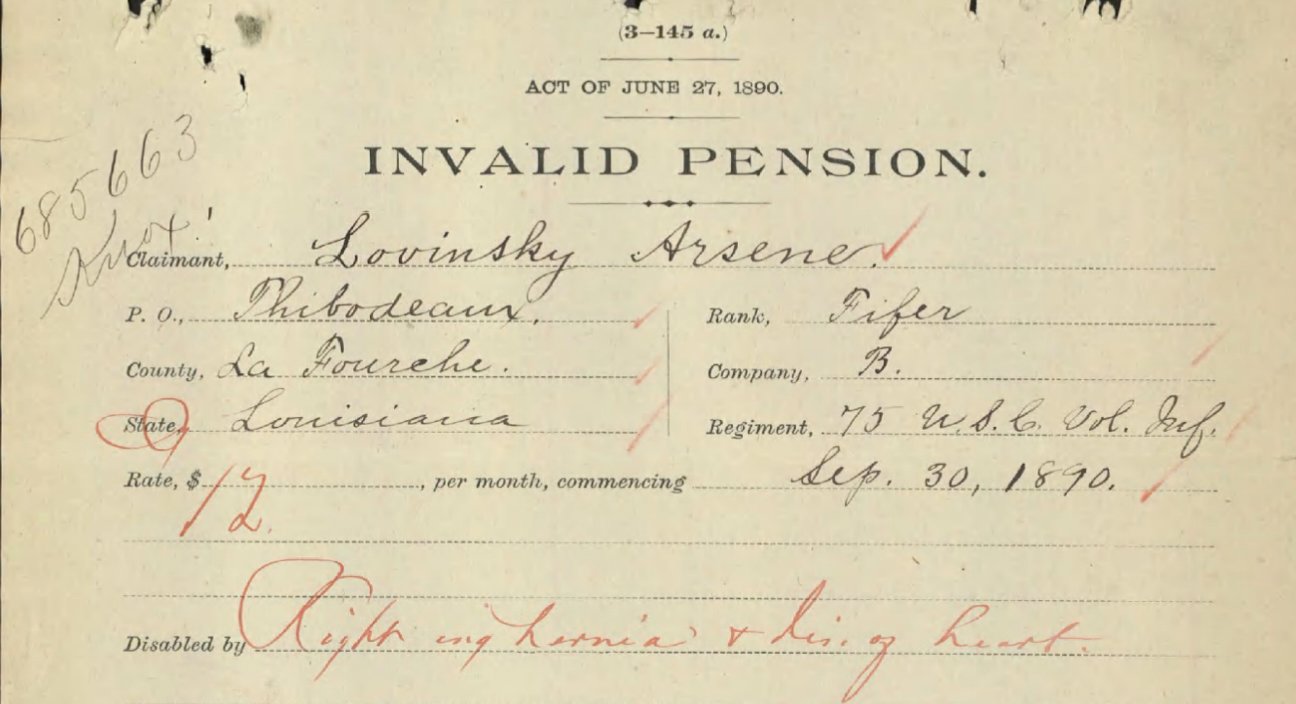 (3—145 a.)
ACT OF JUNE 27, 1890.
INVALID PENSION.
685663
Claimant, Lovinsky Arsene.
P. O., Thibodeaux.
Rank, Fifer
County, La Fourche.
Company, B.
State, Louisiana
Regiment, 75 U.S.C. Vol. Inf.
Rate, $12, per month, commencing Sep. 30, 1890.
Disabled by Right ing hernia & dis. of heart.